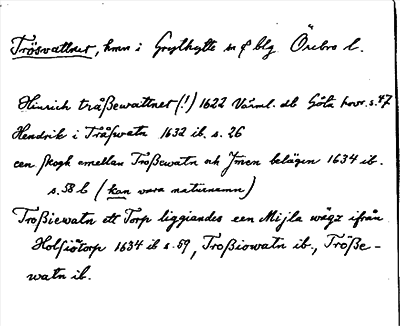 Trösvattnet, hmn i Grythytte sn o blg Örebro l.
Hinrich tråßewattnet (!) 1622 Värml. db Göta hovr. s. 47
Hendrik i Tråßwatn 1632 ib. s. 26
een skogh emellan Troßewatn och Jmen belägen 1634 ib.
s. 58 b (kan vara naturnamn)
Troßiewatn ett Torp liggiandes een Mijla wägz ifrån
Holsiötorp 1634 ib s. 59, Troßiowatn ib., Tröße-
watn ib.